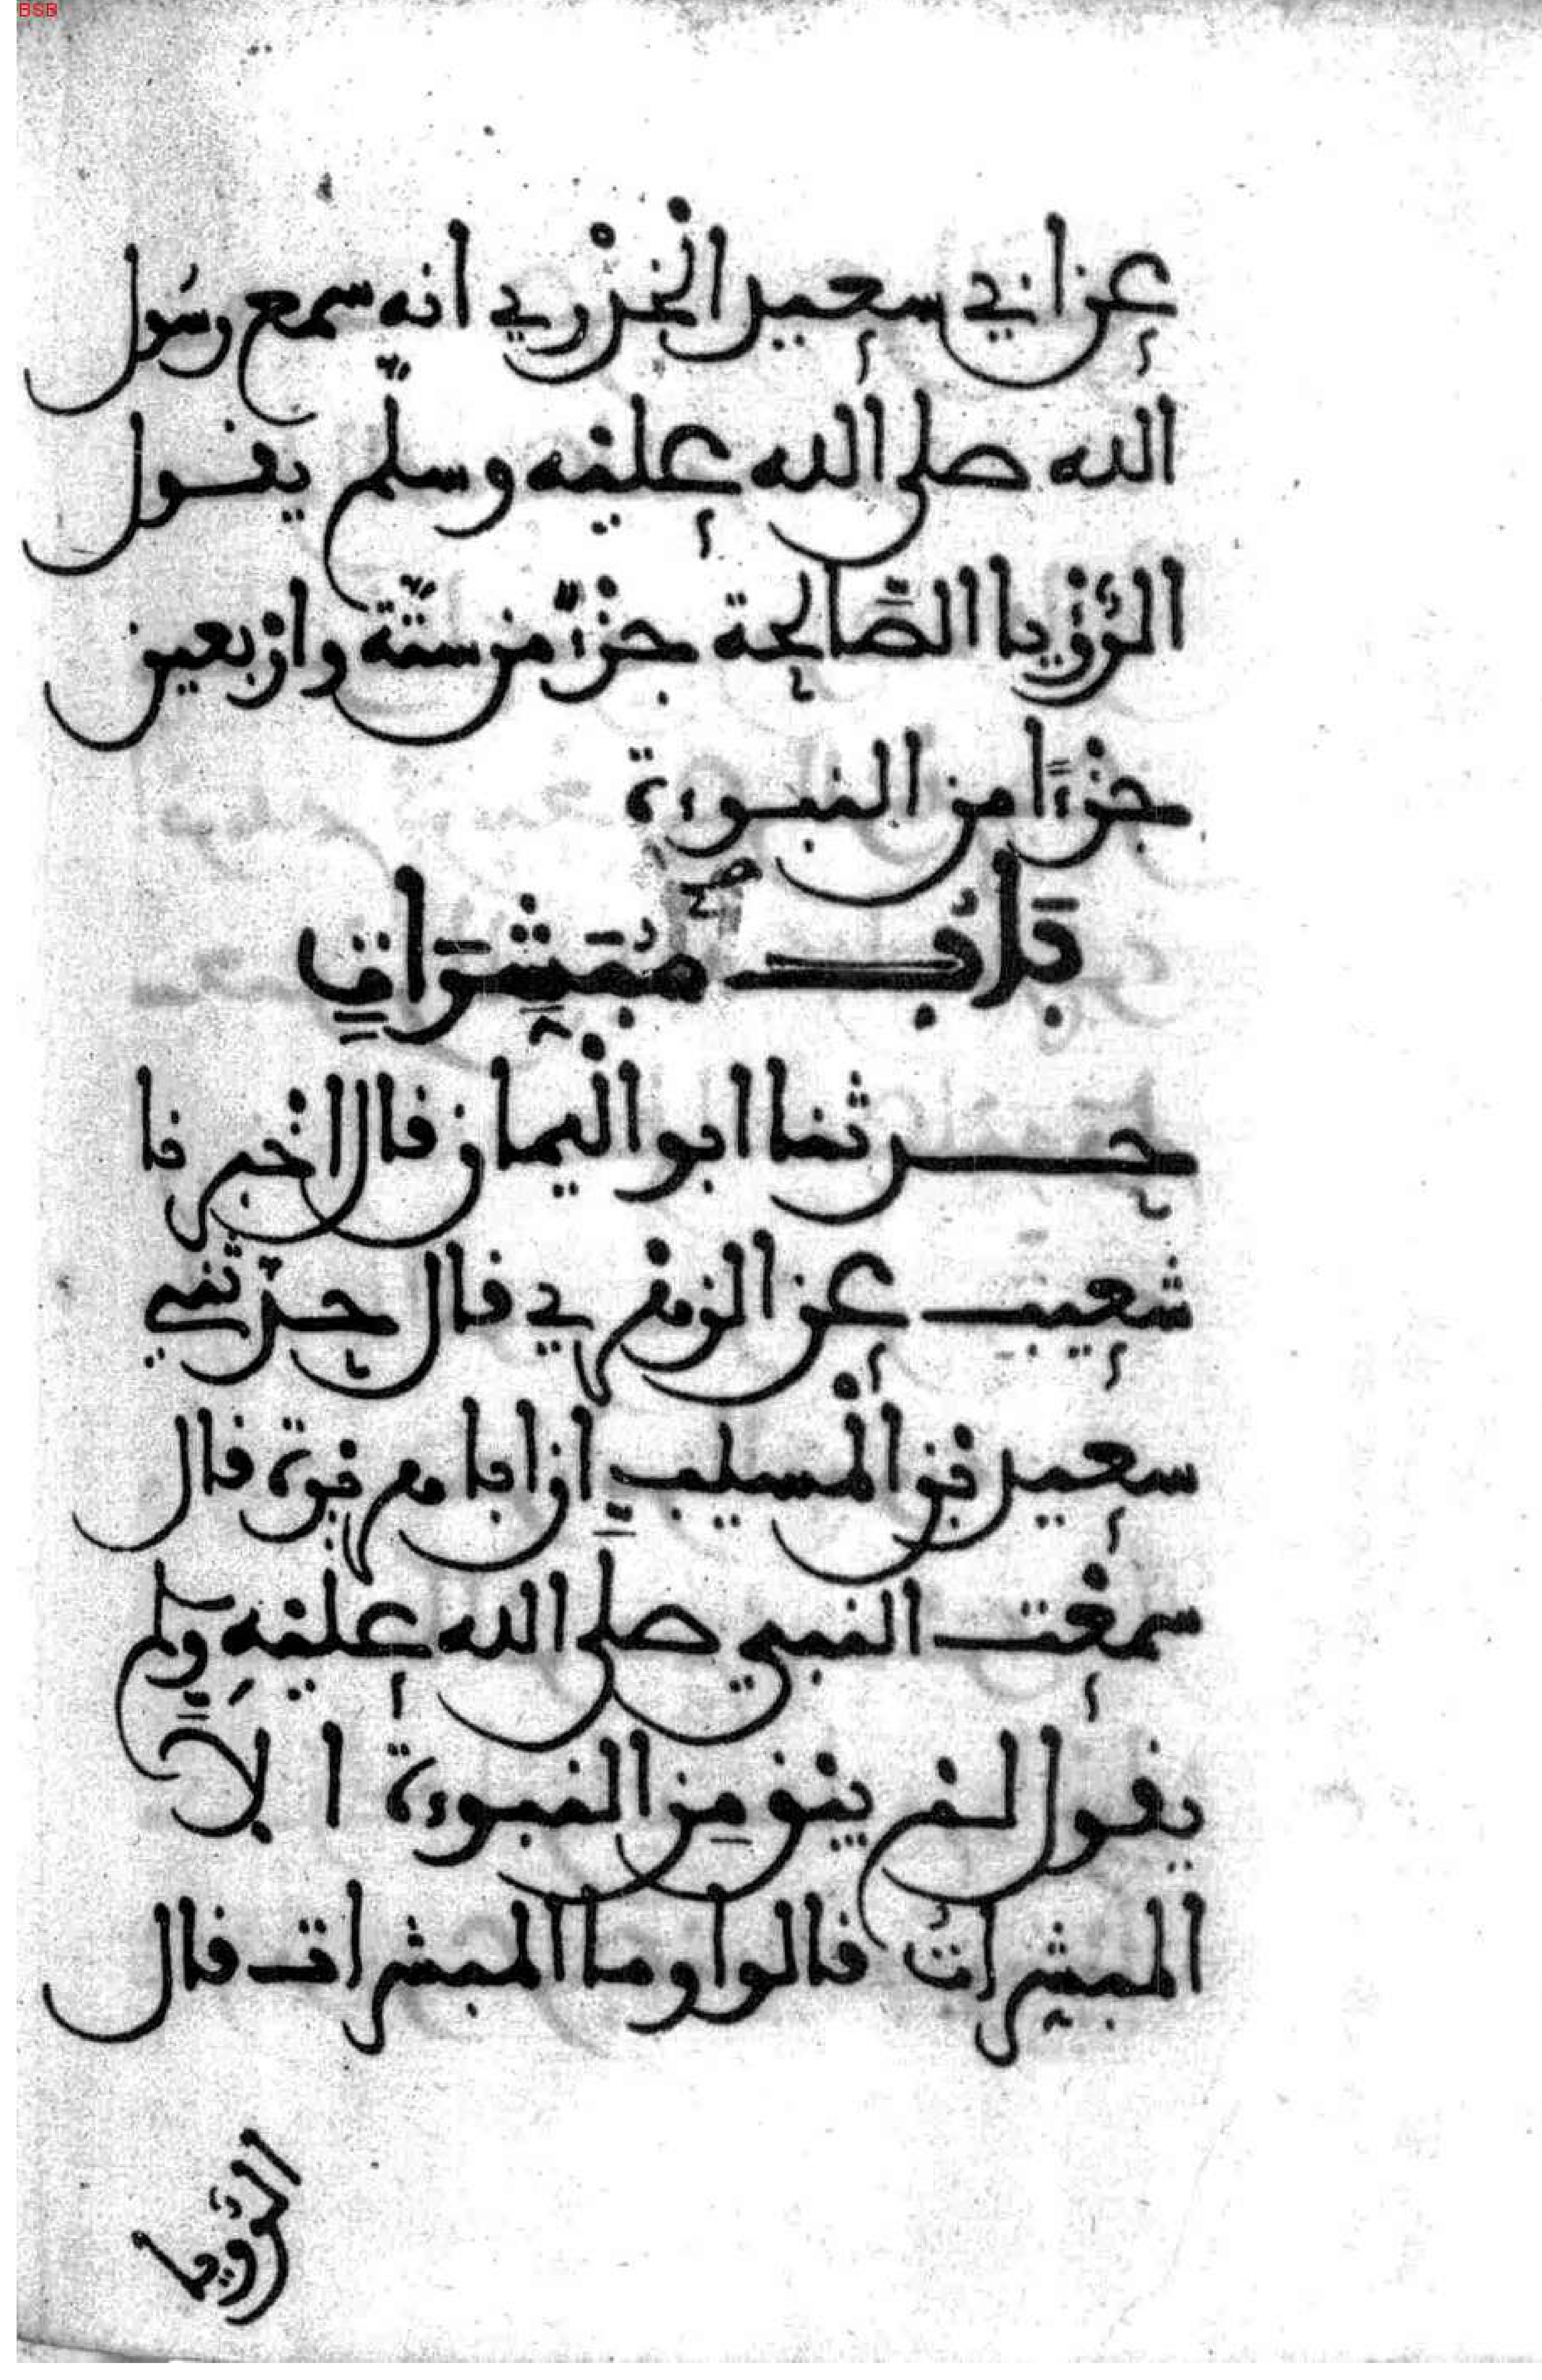 BSB
عن ابي سعيد الخدْري انه سمع رسُول
الله صلى الله عليْه وسلّم يقول
الرُّؤْيا الصَّالحة جزْءٌ من ستّة وارْبعين
جزْءًا من النبوءة
بَابُ مُبَشِّرَاتٍ
حدثنا ابو الْيمان قال اخْبرنا
شعيب عن الزهْري قال حدّثني
سعيد بْن الْمسيِّب ان ابا هريْرة قال
سمعْت النبي صلَّى الله عليْه وسلم
يقول لمْ يبْق مِن النبوءة الاَّ
المبشّراتُ قالوا وما المبشرات قال
الرُّؤيا